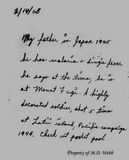 2/14/08
My father in Japan 1945
he has malaria + dingle fever
he says at the time, he is
at Mount Fugi. A highly
decorated soldier, shot 2 times
at Luzon Island, Pacific campaign
1943. Check out pocket pool
Property of M.D. Webb